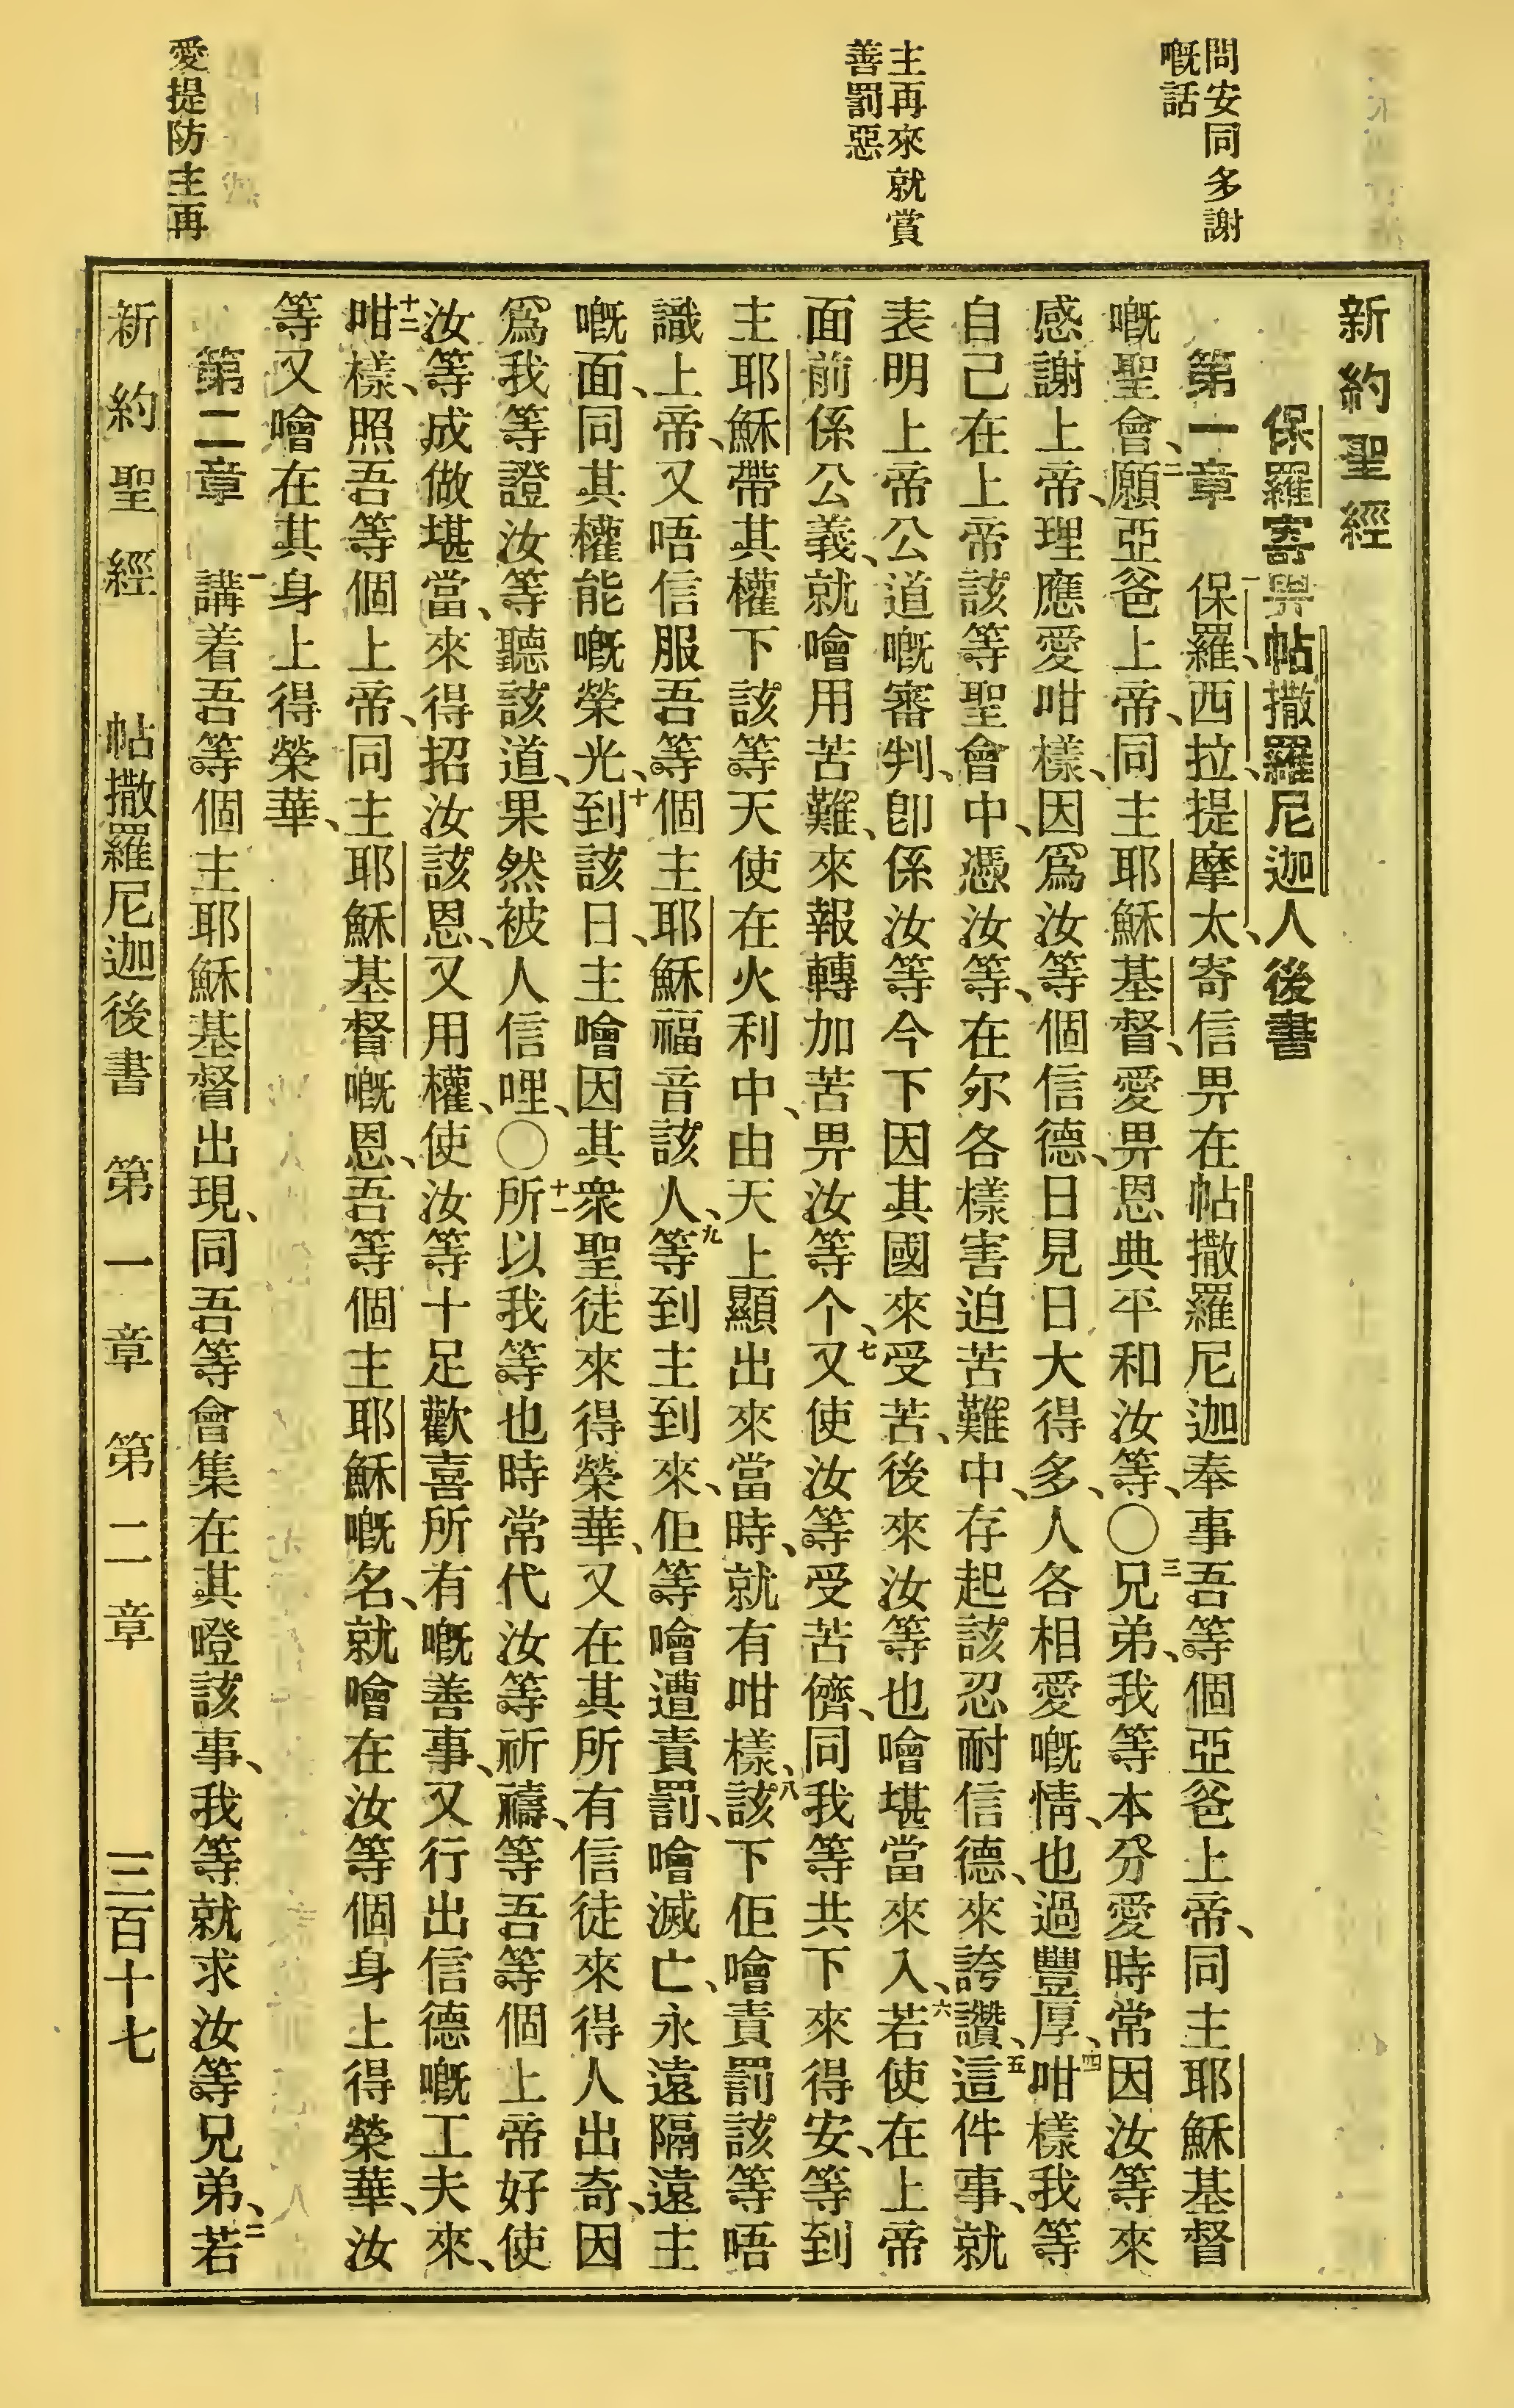 問安同多謝
嘅話
主再來就賞
善罰惡
愛提防主再
新約聖經
保羅寄畀帖撒羅尼迦人後書
第一章　一保羅、西拉、提摩太、寄信畀在帖撒羅尼迦奉事吾等個亞爸上帝、同主耶穌基督
嘅聖會、二願亞爸上帝、同主耶穌基督、愛畀恩典平和汝等、〇三兄弟、我等本分愛時常因汝等來
感謝上帝、理應愛咁樣、因爲汝等個信德、日見日大得多、人各相愛嘅情、也過豐厚、四咁樣我等
自己在上帝該等聖會中、憑汝等、在尔各樣害迫苦難中、存起該忍耐信德、來誇讚、五這件事、就
表明上帝公道嘅審判、卽係汝等今下因其國來受苦、後來汝等也噲堪當來入、六若使在上帝
面前係公義、就噲用苦難、來報轉加苦畀汝等个、七又使汝等受苦儕、同我等共下來得安、等到
主耶穌帶其權下該等天使在火利中、由天上顯出來當時、就有咁樣、八該下佢噲責罰該等唔
識上帝、又唔信服吾等個主耶穌福音該人、九等到主到來、佢等噲遭責罰、噲滅亡、永遠隔遠主
嘅面、同其權能嘅榮光、十到該日、主噲因其衆聖徒來得榮華、又在其所有信徒來得人出奇、因
爲我等證汝等聽該道、果然被人信哩、〇十一所以我等也時常代汝等祈禱、等吾等個上帝好使
汝等成做堪當、來得招汝該恩、又用權、使汝等十足歡喜所有嘅善事、又行出信德嘅工夫來、
十二咁樣、照吾等個上帝、同主耶穌基督嘅恩、吾等個主耶穌嘅名、就噲在汝等個身上得榮華、汝
等又噲在其身上得榮華、
第二章　一講着吾等個主耶穌基督出現、同吾等會集在其嶝該事、我等就求汝等兄弟、二若
新約聖經　帖撒羅尼迦後書　第一章　第二章　三百十七